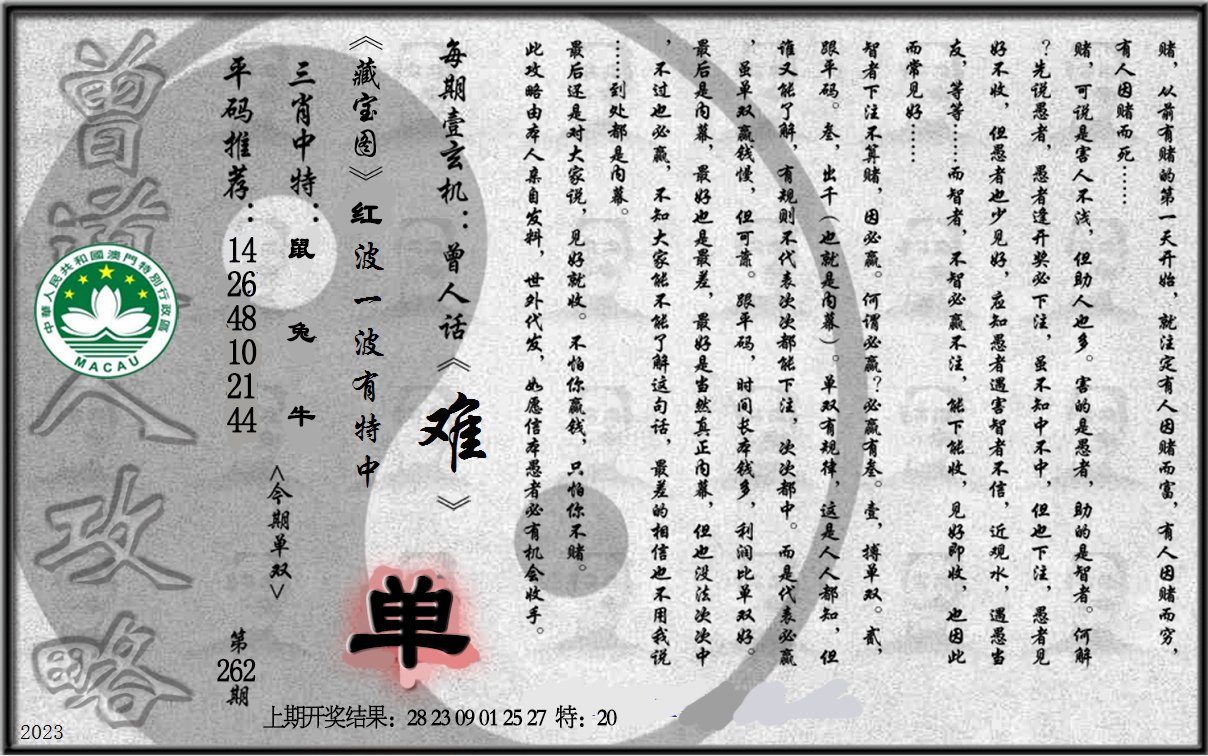 赌，从前有赌的第一天开始，就注定有人因赌而富，有人因赌而穷，
有人因赌而死……
赌，可说是害人不浅，但助人也多。害的是愚者，助的是智者。何解
？先说愚者，愚者逢开奖必下注，虽不知中不中，但也下注，愚者见
好不收，但愚者也少见好，应知愚者遇害智者不信，近观水，遇愚当
友，等等……而智者，不智必赢不注，能下能收，见好即收，也因此
而常见好……
智者下注不算赌，因必赢。何谓必赢？必赢有叁。壹，搏单双。贰，
跟平码。叁，出千（也就是内幕）。单双有规律，这是人人都知，但
谁又能了解，有规则不代表次次都能下注，次次都中。而是代表必赢
，虽单双赢钱慢，但可靠。跟平码，时间长本钱多，利润比单双好。
最后是内幕，最好也是最差，最好是当然真正内幕，但也没法次次中
，不过也必赢，不知大家能不能了解这句话，最差的相信也不用我说
……到处都是内幕。
最后还是对大家说，见好就收。不怕你赢钱，只怕你不赌。
此攻略由本人亲自发料，世外代发，如愿信本愚者必有机会收手。
每期壹玄机：曾人话《难》
《藏宝图》红波一波有特中
单
三肖中特：鼠 兔 牛
<今期单双>
平码推荐：14 26 48 10 21 44
第262期
曾道人攻略
中華人民共和國澳門特別行政區
MACAU
上期开奖结果：28 23 09 01 25 27 特：20
2023